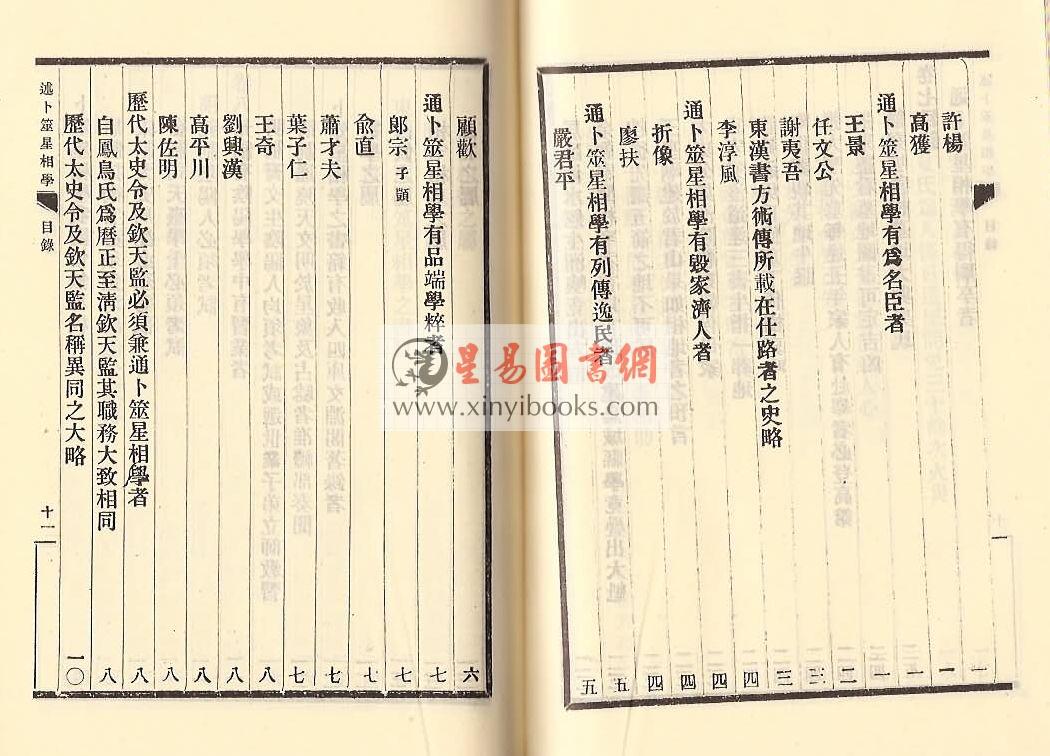 許楊 一
高獲 一
通卜筮星相學有為名臣者 一
王景 二
任文公 三
謝夷吾 三
東漢書方術傳所載在仕路者之史略 四
李淳風 四
通卜筮星相學有毀家濟人者 四
折像 四
廖扶 五
通卜筮星相學有列傳逸民者
嚴君平 五
顧歡 六
通卜筮星相學有品端學粹者 七
郎宗 子顗 七
俞直 七
蕭才夫 七
葉子仁 七
王奇 八
劉興漢 八
高平川 八
陳佐明 八
歷代太史令及欽天監必須兼通卜筮星相學者 八
自鳳鳥氏為曆正至清欽天監其職務大致相同 八
歷代太史令及欽天監名稱異同之大略 一〇
述卜筮星相學 目錄 十一
星易圖書網
www.xinyibooks.com